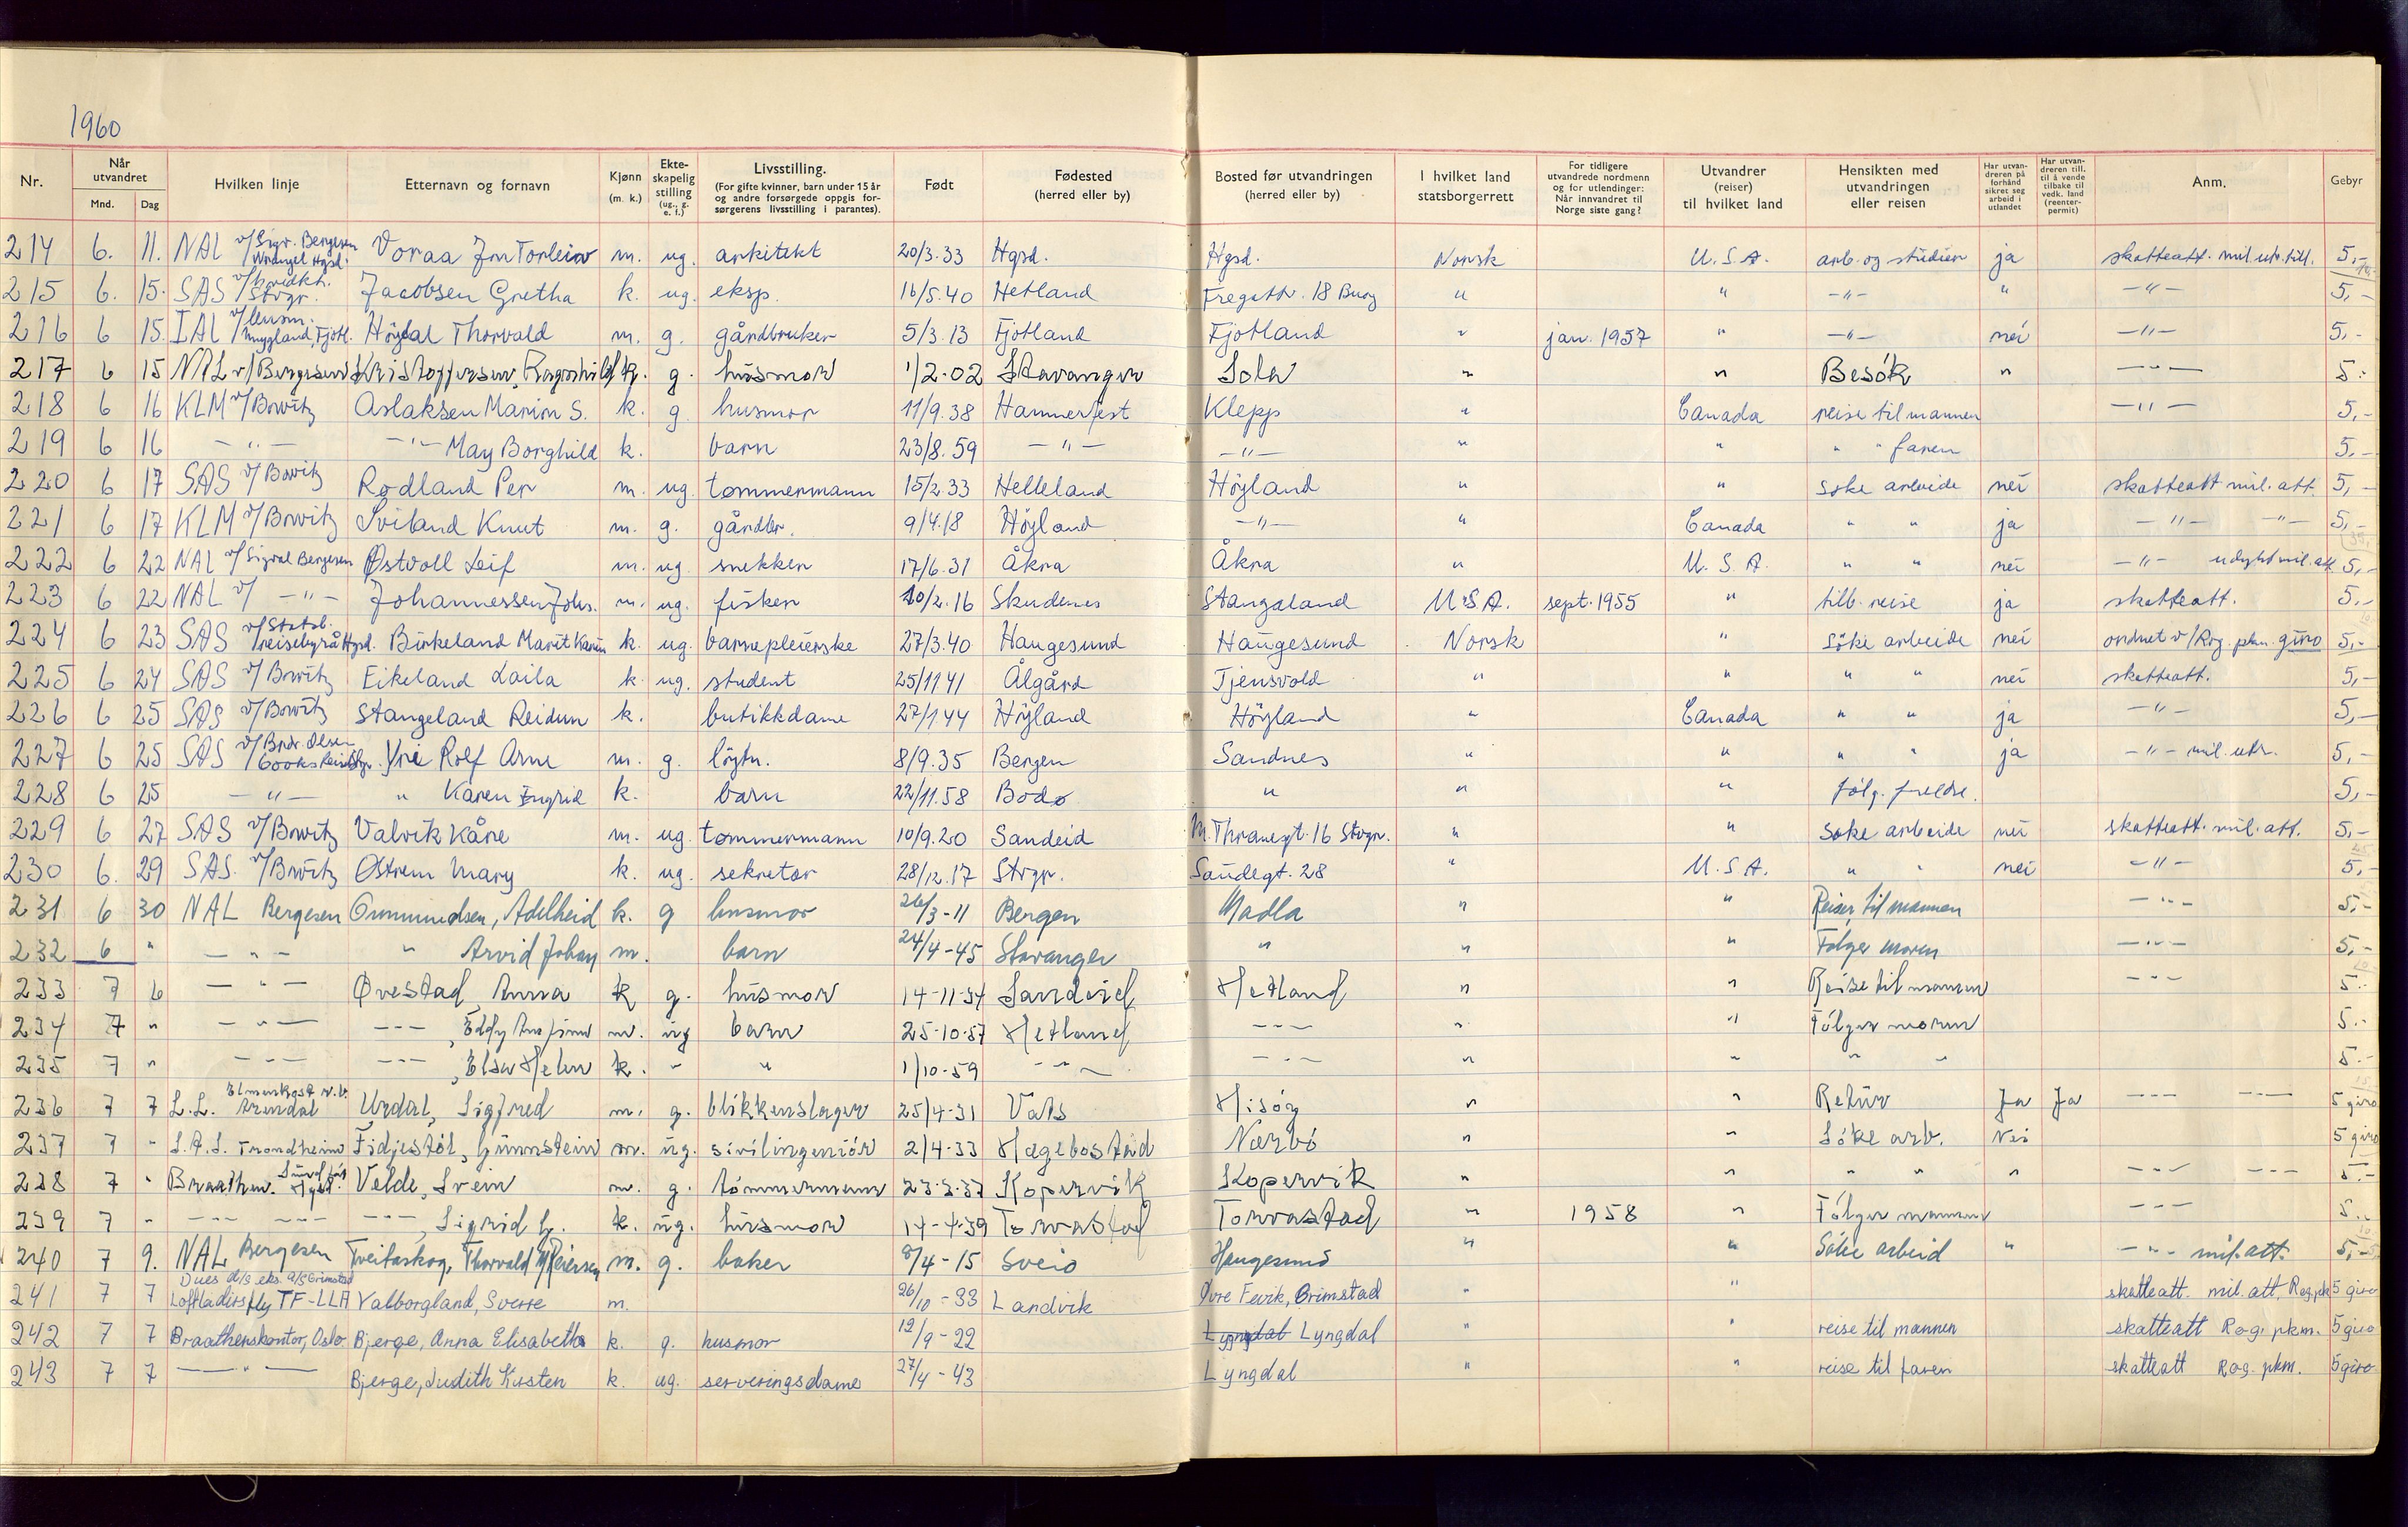 1960
Nr. | Når utvandret Mnd. Dag | Hvilken linje | Etternavn og fornavn | Kjønn (m. k.) | Ekteskapelig stilling (ug., g. e. f.) | Livsstilling. (For gifte kvinner, barn under 15 år og andre forsørgede oppgis forsørgerens livsstilling i parantes). | Født | Fødested (herred eller by) | Bosted før utvandringen (herred eller by) | I hvilket land statsborgerrett | For tidligere utvandrede nordmenn og for utlendinger: Når innvandret til Norge siste gang? | Utvandrer (reiser) til hvilket land | Hensikten med utvandringen eller reisen | Har utvandreren på forhånd sikret seg arbeid i utlandet | Har utvandreren till. til å vende tilbake til vedk. land (reenterpermit) | Anm. | Gebyr
214 6. 11. NAL v/Sigv. Bergesen Wrangel Hgsd. Voraa Jon Torleiv m. ug. arkitekt 20/3.33 Hgsd. Hgsd. Norsk U.S.A. arb. og studier ja skatteatt. mil.utr.till. 5,-
215 6. 15. SAS Stvgr. Jacobsen Gretha k. ug. eksp. 16/5.40 Hetland Fregattv. 18 Buøy " " -"- " -"- 5,-
216 6 15. IAL v/lensm. Fjotl. Höydal Thorvald m. g. gårdbruker 5/3.13 Fjotland Fjotland " jan. 1957 " -"- nei -"- 5,-
217 6 15 NAL v/Bergesen Kristoffersen, Ragnhild k. g. husmor 1/2-02 Stavanger Sola " " Besök " -"- 5.-
218 6 16 KLM v/Bowitz Aslaksen Marion S. k. g. husmor 11/9.38 Hammerfest Klepp " Canada reise til mannen -"- 5,-
219 6 16 -"- -"- May Borghild k. barn 23/8.59 -"- -"- " " " " faren 5,-
220 6 17 SAS v/Bowitz Rødland Per m. ug. tømmermann 15/2.33 Helleland Höyland " " søke arbeide nei skatteatt mil. att. 5,-
221 6 17 KLM v/Bowitz Sviland Knut m. g. gårdbr. 9/4.18 Höyland -"- " Canada " " ja -"- -"- 5,-
222 6 22 NAL v/Sigval Bergesen Østvoll Leif m. ug. snekker 17/6.31 Åkra Åkra " U.S.A. " " nei -"- mil.att. 5,-
223 6 22 NAL v/ -"- Johannessen Johs. m. ug. fisker 10/2.16 Skudenes Stangaland U.S.A. sept. 1955 " tilb. reise ja skatteatt. 5,-
224 6 23 SAS v/Statsb. reisebyrå Hgsd. Birkeland Marit Karin k. ug. barnepleierske 27/3.40 Haugesund Haugesund Norsk " söke arbeide nei ordnet v/Rog. pkm. giro 5,-
225 6 24 SAS v/Bowitz Eikeland Laila k. ug. student 25/11 41 Ålgård Tjensvold " " " " nei skatteatt. 5,-
226 6 25 SAS v/Bowitz Stangeland Reidun k. butikkdame 27/1 44 Höyland Höyland " Canada " " ja -"- 5,-
227 6 25 SAS v/Brdr. Olsen Yri Rolf Arne m. g. löytn. 8/9.35 Bergen Sandnes " " " " ja -"- mil. utr. 5,-
228 6 25 -"- " Karen Ingrid k. barn 22/11.58 Bodø " " " følg. 5,-
229 6 27 SAS v/Bowitz Valvik Kåre m. ug. tømmermann 10/9.20 Sandeid M. Thranesgt. 16 Stvgr. " " søke arbeide nei skatteatt. mil. att. 5,-
230 6. 29 SAS. v/Bowitz Østrem Mary k. ug. sekretær 28/12.17 Stvgr. Saudegt. 28 " U.S.A. " " nei -"- 5,-
231 6 30 NAL Bergesen Ommundsen, Adelheid k. g husmor 26/3-11 Bergen Madla " " Reiser til mannen -"- 5,-
232 6 " -"- " Arvid Johan m. barn 24/4-45 Stavanger " " " Følger moren -"- 5,-
233 7 6 -"- Øvestad, Anna k g. husmor 14-11-34 Sandeid Hetland " " Reise til mannen -"- 5.-
234 7 " -"- ---, Eddy m. ug barn 25-10-57 Hetland --- " " Følger moren 5.-
235 7 " --- ---, k. " " 1/10-59 -"- -"- " " " " 5.-
236 7 7 L.L. Arendal Urdal, Sigfred m. g. blikkenslager 25/4-31 Vats Hisöy " " Retur Ja Ja --- --- 5 giro
237 7 " S.A.S. Trondheim Fidjestöl, Gunnstein m. ug. sivilingeniör 2/4-33 Hægebostad Nærbö " " Söke arb. Nei 5 giro
238 7 " Braathen. Velde, Svein m. g. tömmermann 23-3-37 Kopervik Kopervik " " " " " --- --- 5.-
239 7 " --- --- ---, Sigrid G. k. ug. husmor 14-4-39 Torvastad Torvastad " 1958 " Fölger mannen --- 5.-
240 7 9. NAL Bergesen Tveitaskog, Thorvald m. g. baker 8/4-15 Sveio Haugesund " " Söke arbeid " -"- mil.att. 5,-
241 7 7 Loftladirs fly TF-LLA Valborgland, Sverre m. 26/10-33 Landvik Øvre Fevik, Grimstad " " skatteatt. mil. att, Rog.pk 5 giro
242 7 7 Braathenskontor, Oslo Bjerge, Anna Elisabeth k. g. husmor 12/9-22 Lyngdal Lyngdal " " reise til mannen skatteatt Rog. pkm. 5 giro
243 7 7 -"- Bjerge, Judith Kirsten k. ug. serveringsdame 27/4-43 Lyngdal " " reise til faren skatteatt Rog. pkm. 5 giro